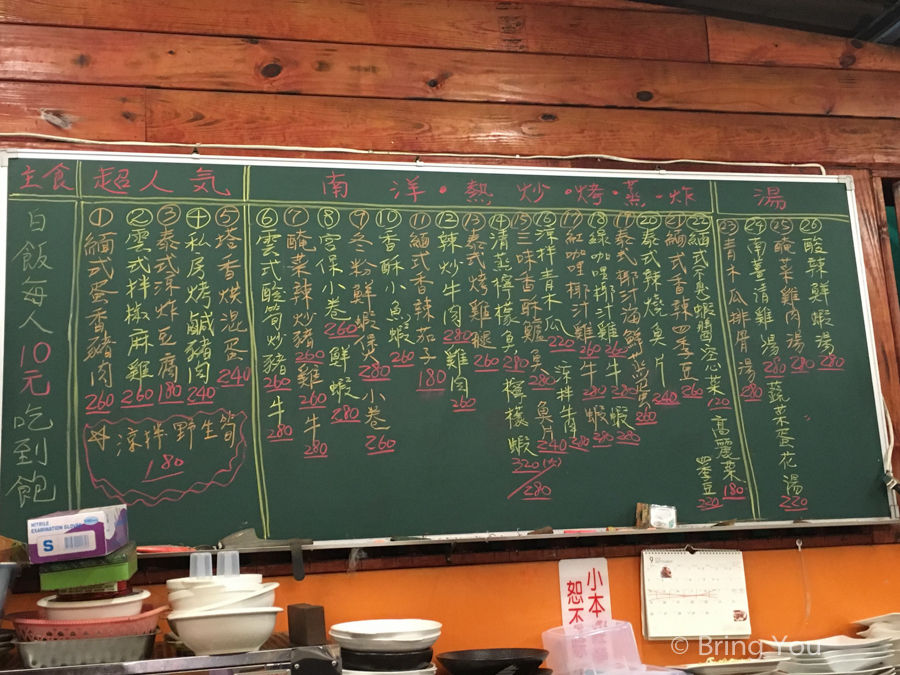 主食
白飯每人10元吃到飽
超人氣
①緬式蛋香豬肉 260
②雲式拌椒麻雞 260
③泰式涼炸豆腐 180
④私房烤鹹豬肉 240
⑤塔香烘混蛋 240
涼拌野生筍 180
南洋·熱炒·烤·蒸·炸
⑥雲式酸筍炒豬 260 牛 280
⑦醃菜辣炒豬 260 雞 260 牛 280
⑧宮保小卷 260 鮮蝦 280
⑨冬粉鮮蝦煲 280 小卷 260
⑩香酥小魚蝦 260
⑪緬式香辣茄子 180
⑫辣炒牛肉 280 雞肉 260
⑬泰式烤雞腿 260
⑭清蒸檸檬魚 檸檬蝦 320(大)/280
⑮三味香酥雞 魚 280 魚片 240
⑯涼拌青木瓜 220 涼拌牛肉 280
⑰紅咖哩椰汁雞 260 牛 280 蝦 280
⑱綠咖哩椰汁雞 260 牛 280 蝦 280
⑲泰式椰汁海鮮 260
⑳泰式辣燒魚片 240
㉑緬式香辣四季豆 260
㉒緬式 蝦醬 菜 高麗菜 180 四季豆 220
湯
㉓青木瓜排骨湯 280
㉔南薑清雞湯 280 蔬菜蛋花湯 220
㉕酸菜雞肉湯 280
㉖酸辣鮮蝦湯 280
NITRILE
EXAMINATION GLOVES
S
小本
恕不
9
© Bring You